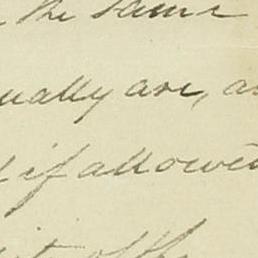 the same
ually are, a
if allowed
of the